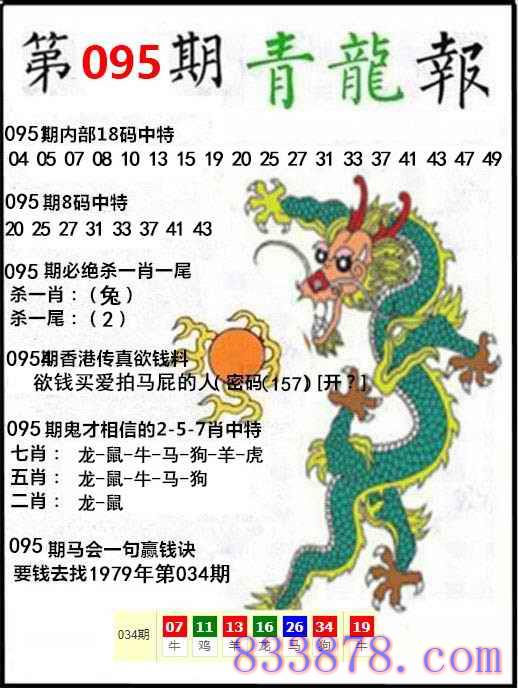 第095期青龍報
095期内部18码中特
04 05 07 08 10 13 15 19 20 25 27 31 33 37 41 43 47 49
095期8码中特
20 25 27 31 33 37 41 43
095期必绝杀一肖一尾
杀一肖：（兔）
杀一尾：（2）
095期香港传真欲钱料
欲钱买爱拍马屁的人(密码(157)[开？]
095期鬼才相信的2-5-7肖中特
七肖： 龙-鼠-牛-马-狗-羊-虎
五肖： 龙-鼠-牛-马-狗
二肖： 龙-鼠
095期马会一句赢钱诀
要钱去找1979年第034期
034期 07 11 13 16 26 34 19
牛 鸡 羊 龙 马 狗 牛
833878.com